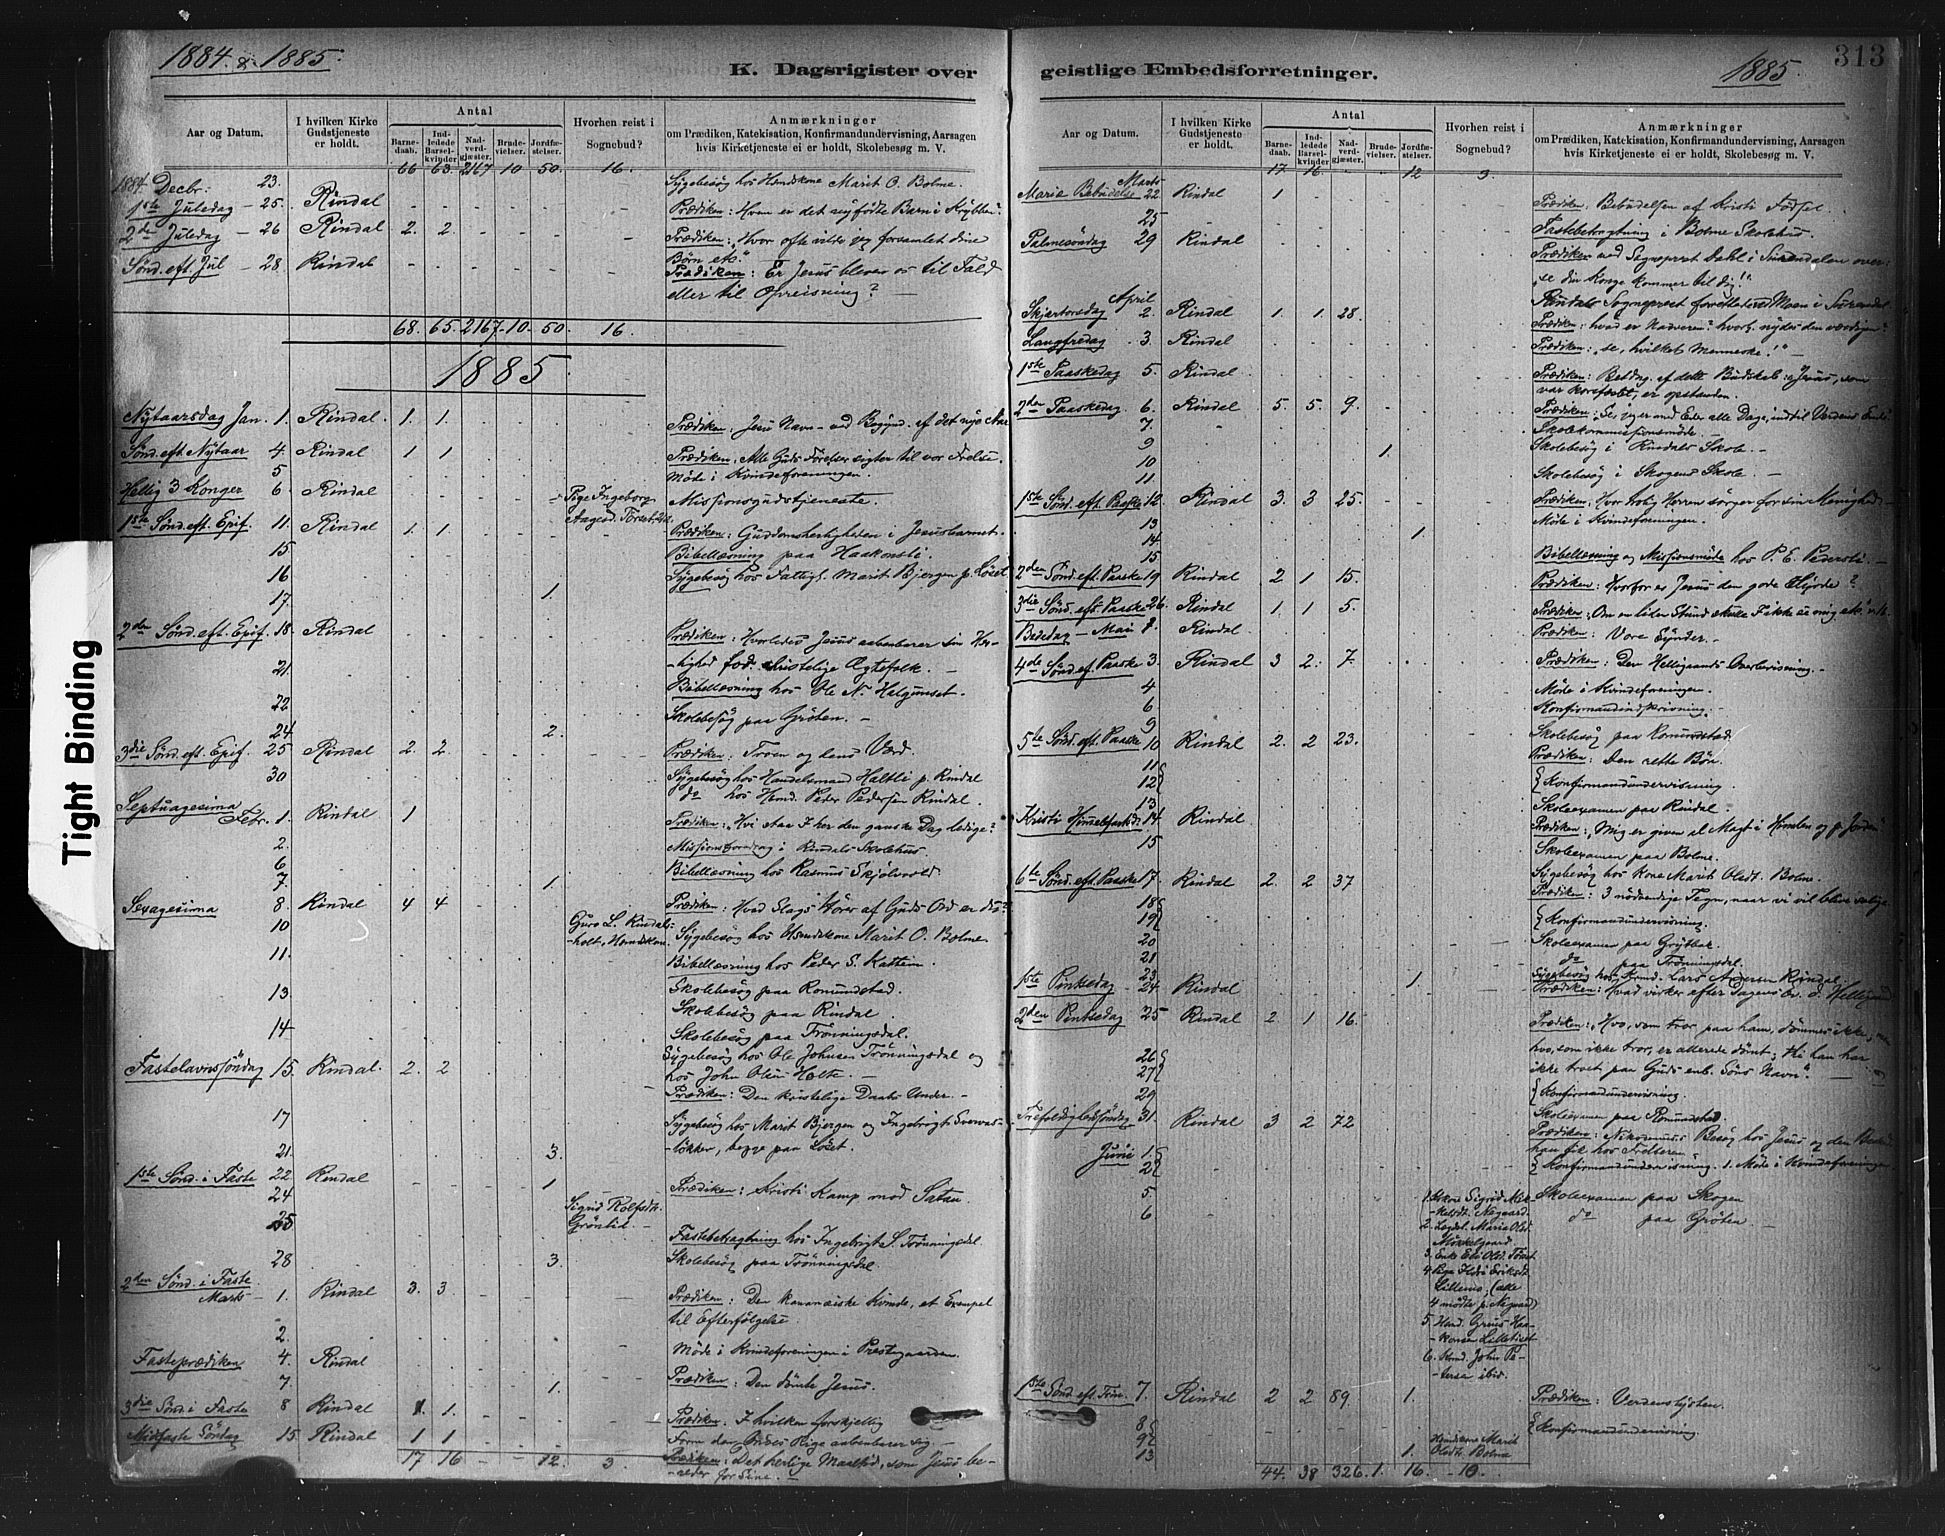 1884 & 1885.
K. Dagsrigister over
Aar og Datum.
I hvilken Kirke Gudstjeneste er holdt.
Antal
Barnedaab.
Indledede Barselkvinder
Nadverdgjæster.
Brudevielser.
Jordfæstelser.
Hvorhen reist i Sognebud?
Anmærkninger
om Prædiken, Katekisation, Konfirmandundervisning, Aarsagen
hvis Kirketjeneste ei er holdt, Skolebesøg m. V.
66 63. 2167 10 50. 16.
1884 Decbr: 23. Sygebesøg hos Marit O. Bolme.
1ste Juledag – 25. Rindal Prædiken: Hvem er det nyfødte Barn i Krybben?
2den Juledag – 26 Rindal 2. 2. Prædiken: "Hvor ofte vilde jeg forsamlet dine
Børn etc."
Sønd. eft. Jul – 28. Rindal Prædiken: Er Jesus bleven os til Fald
eller til Opreisning?
68. 65. 2167. 10. 50. 16.
1885
Nytaarsdag Jan. 1. Rindal. 1. 1. Prædiken: Jesu Navn – ved Begynd. af det nye Aar
Sønd. eft. Nytaar 4. Rindal 1 1 Prædiken: Alle Guds Førelser sigter til vor Frelse.
5 Møde i Kvindeforeningen
Hellig 3 Konger 6 Rindal Pige Ingeborg Missionsgudstjeneste
1ste Sønd. eft. Epif. 11. Rindal 1. 1 Prædiken: Guddomsherligheden i Jesusbarnet.
15 Bibellæsning paa Haakonsli.
16 Sygebesøg hos Fattigl. Marit Bjergen p. Løset
17. 1.
2den Sønd. eft. Epif. 18. Rindal Prædiken: Hvorledes Jesus aabenbarer sin Her-
-lighed for christelige Ægtefolk. –
21. Bibellæsning hos Ole N. Halgunset.
22 Skolebesøg paa Grøten. –
24 2.
3die Sønd. eft. Epif. 25 Rindal 2. 2. Prædiken: Troen og dens Værd.
30 Sygebesøg hos Handelsmand Haltli p. Rindal
do hos Peder Pedersen Rindal.
Septuagesima
Febr. 1. Rindal 1 Prædiken: "Hvi staa I her den ganske Dag ledige?"
2. Missionsforedrag i Rindals Skolehus.
6 Bibellæsning hos Rasmus Skjølsvold.
7. 1.
Sexagesima 8 Rindal 4 4 Prædiken: Hvad Slags Hører af Guds Ord er du?
10 Guro L. Rindals-
-holt, Sygebesøg hos Marit O. Bolme.
11. Bibellæsning hos Peder S. Kattem.
13 Skolebesøg paa Romundstad.
Skolebesøg paa Rindal.
14 Skolebesøg paa Trønningsdal.
Sygebesøg hos Ole Johnsen Trønningsdal og
Fastelavnssøndag 15. Rindal. 2. 2 hos John Olsen Holte. –
Prædiken: Den kristelige Daabs Under. –
17 Sygebesøg hos Marit Bjergen og Ingebrigt
-løkken, begge paa Løset.
21. 3.
1ste Sønd. i Faste 22 Rindal 1 Prædiken: Kristi Kamp mod Satan.
24 Sigrid Rolfsdt.
25 Grønlid. – Fastebetragtning hos Ingebrigt S. Trønningsdal
28 3. Skolebesøg paa Trønningsdal.
2den Sønd. i Faste
Marts – 1. Rindal 3. 3. Prædiken: Den kananæiske Kvinde, et Exempel
til Efterfølgelse.
2. Møde i Kvindeforeningen i Præstegaarden.
Fasteprædiken 4. Rindal Prædiken: Den dømte Jesus.
7. 1.
3die Sønd. i Faste 8 Rindal 1. 1. Prædiken: I hvilken forskjellig
Form den Guds Rige aabenbarer sig –
Midfaste Søndag 15. Rindal 1 1 Prædiken: Det herlige Maaltid, som Jesus be-
-reder for Sine. –
17 16 – – 12. 3.
geistlige Embedsforretninger.
1885.
313
Aar og Datum.
I hvilken Kirke Gudstjeneste er holdt.
Antal
Barnedaab.
Indledede Barselkvinder
Nadverdgjæster.
Brudevielser.
Jordfæstelser.
Hvorhen reist i Sognebud?
Anmærkninger
om Prædiken, Katekisation, Konfirmandundervisning, Aarsagen
hvis Kirketjeneste ei er holdt, Skolebesøg m. V.
17 16 – – 12 3
Marts
Mariæ Bebudelse 22 Rindal 1 Prædiken. Bebudelsen af Kristi Fødsel.
25 Fastebetragtning i Bolme Skolehus.
Palmesøndag 29 Rindal Prædiken ved Sogneprest Dahl i Surendalen over:
"se din Konge kommer til dig!"
Rindals Sogneprest forrettede ved Moen i Surendal
April
Skjærtorsdag 2. Rindal 1. 1. 28 Prædiken: hvad er Nadveren? hvorl. nydes den værdigen?
Langfredag . 3. Rindal Prædiken: "se, hvilket Menneske!" –
1ste Paaskedag 5. Rindal Prædiken: Betdng. af dette Budskab: Jesus, som
var korsfæstet, er opstanden.
2den Paaskedag 6. Rindal 5. 5. 9. Prædiken: Se, jeg er med Eder alle Dage, indtil Verdens Ende
7 Skolekommissionsmøde. –
9 1. Skolebesøg i Rindals Skole. –
10 Skolebesøg i Skogens Skole. –
11
1ste Sønd. eft. Paaske 12. Rindal 3. 3 25. Prædiken: Hvor trolig Herren sørger for sin Menighed
13 Møde i Kvindeforeningen.
14 1.
15 Bibellæsning og Missionsmøde hos P. E. Pedersli. –
2den Sønd. eft. Paaske 19 Rindal 2 1 15. Prædiken: Hvorfor er Jesus den gode Hyrde?
3die Sønd. eft. Paaske 26. Rindal 1 1 5. Prædiken: "Om en liden Stund skulle I ikke se mig etc."
Bededag – Mai 1. Rindal Prædiken: Vore Synder. –
4de Sønd. ef. Paaske 3. Rindal 3 2. 7. Prædiken: Den Helligaands Overbevisning. –
4 Møde i Kvindeforeningen.
6 Konfirmandindskrivning. –
9 Skolebesøg paa Romundstad
5te Sønd. eft. Paaske 10 Rindal 2. 2 23. Prædiken: Den rette Bøn.
11
12 Konfirmandundervisning.
13 Skoleexamen paa Rindal
Kristi Himmelfartsd. 14. Rindal Prædiken: "Mig er given al Magt i Himlen og p. Jorden"
15 Skoleexamen paa Bolme.
Sygebesøg hos Kone Marit Olsdt. Bolme.
6te Sønd. eft. Paaske 17. Rindal 2. 2 37 Prædiken: 3 nødvendige Tegn, naar vi vil blive salige
18
19 Konfirmandundervisning.
20 Skoleexamen paa Grytbak.
21 do paa Trønningsdal.
23 1 Sygebesøg hos Lars Andersen Rindal
1ste Pintsedag – 24 Rindal Prædiken: Hvad virker efter Dagens Ev. d. Helligaand
2den Pintsedag 25 Rindal 2 1 16. Prædiken: "Hvo, som tror paa ham, dømmes ikke, men
hvo, som ikke tror, er allerede dømt; thi han har
ikke troet paa Guds enb. Søns Navn". –
26
27 Konfirmandundervisning.
29 Skoleexamen paa Romundstad.
Trefoldighedssøndag 31. Rindal 3 2 72 Prædiken: Nikodemus's Besøg hos Jesus og den Besked
han fik hos Frelseren.
Juni 1.
2 Konfirmandundervisning. 1. Møde i Kvindeforeningen
5 Skoleexamen paa Skogen
6 do paa Grøten. –
1. Sigrid Mik-
-kelsdt. Nygaard.
2. Maria Olsd.
Mikkelgaard.
3. Enke Eli Olsd.
4 Pige Ildri Eriksdt.
Lillemo, (alle
4 mødte p. Nygaard)
5 Grøus Haa-
-konsen
6. John Pe-
-tersa ibid.
1ste Sønd. eft. Trin. 7. Rindal 2 2 89. 1. Prædiken: Verdenslysten.
8
9 Konfirmandundervisning.
13 1. Marit
Olsdt. Bolme
44. 38 326. 1. 16. 10.
Tight Binding